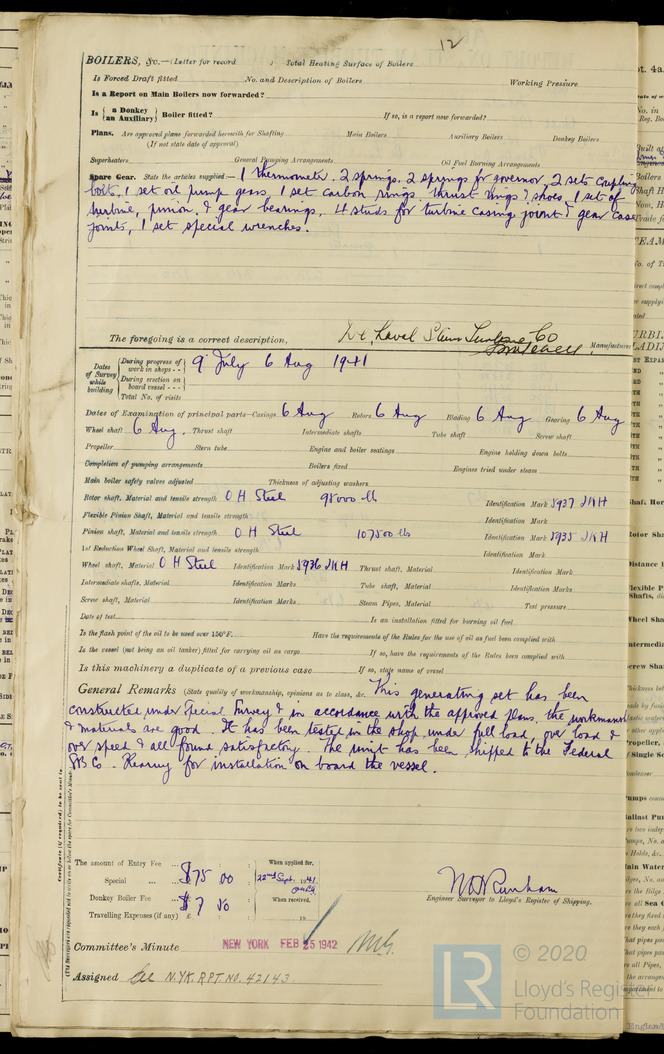 12
BOILERS, &c.—(Letter for record ) Total Heating Surface of Boilers
Is Forced Draft fitted No. and Description of Boilers Working Pressure
Is a Report on Main Boilers now forwarded?
Is { a Donkey / an Auxiliary } Boiler fitted? If so, is a report now forwarded?
Plans. Are approved plans forwarded herewith for Shafting Main Boilers Auxiliary Boilers Donkey Boilers
(If not state date of approval)
Superheaters General Pumping Arrangements Oil Fuel Burning Arrangements
Spare Gear. State the articles supplied:— 1 thermometer. 2 springs. 2 springs for governor, 2 sets coupling
bolts, 1 set oil pump gears, 1 set carbon rings, thrust rings & shoes, 1 set of
turbine, pinion, & gear bearings, 4 studs for turbine casing joint & gear case
joints, 1 set special wrenches.
The foregoing is a correct description, De Laval Steam Turbine Co Manufacturer
Dates of Survey while building
During progress of work in shops - - 9 July 6 Aug 1941
During erection on board vessel - - -
Total No. of visits
Dates of Examination of principal parts—Casings 6 Aug Rotors 6 Aug Blading 6 Aug Gearing 6 Aug
Wheel shaft 6 Aug. Thrust shaft Intermediate shafts Tube shaft Screw shaft
Propeller Stern tube Engine and boiler seatings Engine holding down bolts
Completion of pumping arrangements Boilers fixed Engines tried under steam
Main boiler safety valves adjusted Thickness of adjusting washers
Rotor shaft, Material and tensile strength O H Steel 98000 lb Identification Mark 5937 JNH
Flexible Pinion Shaft, Material and tensile strength Identification Mark
Pinion shaft, Material and tensile strength O H Steel 107500 lbs Identification Mark 5935 JNH
1st Reduction Wheel Shaft, Material and tensile strength Identification Mark
Wheel shaft, Material O H Steel Identification Mark 5936 JNH Thrust shaft, Material Identification Mark
Intermediate shafts, Material Identification Marks Tube shaft, Material Identification Marks
Screw shaft, Material Identification Marks Steam Pipes, Material Test pressure
Date of test Is an installation fitted for burning oil fuel
Is the flash point of the oil to be used over 150°F. Have the requirements of the Rules for the use of oil as fuel been complied with
Is the vessel (not being an oil tanker) fitted for carrying oil as cargo If so, have the requirements of the Rules been complied with
Is this machinery a duplicate of a previous case If so, state name of vessel
General Remarks (State quality of workmanship, opinions as to class, &c. This generating set has been
constructed under Special Survey & in accordance with the approved plans, the workmanship
& materials are good. It has been tested in the shop under full load, over load &
over speed & all found satisfactory. The unit has been shipped to the Federal
SB Co. Kearny for installation on board the vessel.
The amount of Entry Fee ... When applied for,
Special ... $75 00 22nd Sept. 1941
Donkey Boiler Fee ... $7 50 When received,
Travelling Expenses (if any) £ 19
Engineer Surveyor to Lloyd's Register of Shipping.
Committee's Minute NEW YORK FEB 25 1942
Assigned See N.YK.RPT.NO. 42143
LR © 2020
Lloyd's Register
Foundation